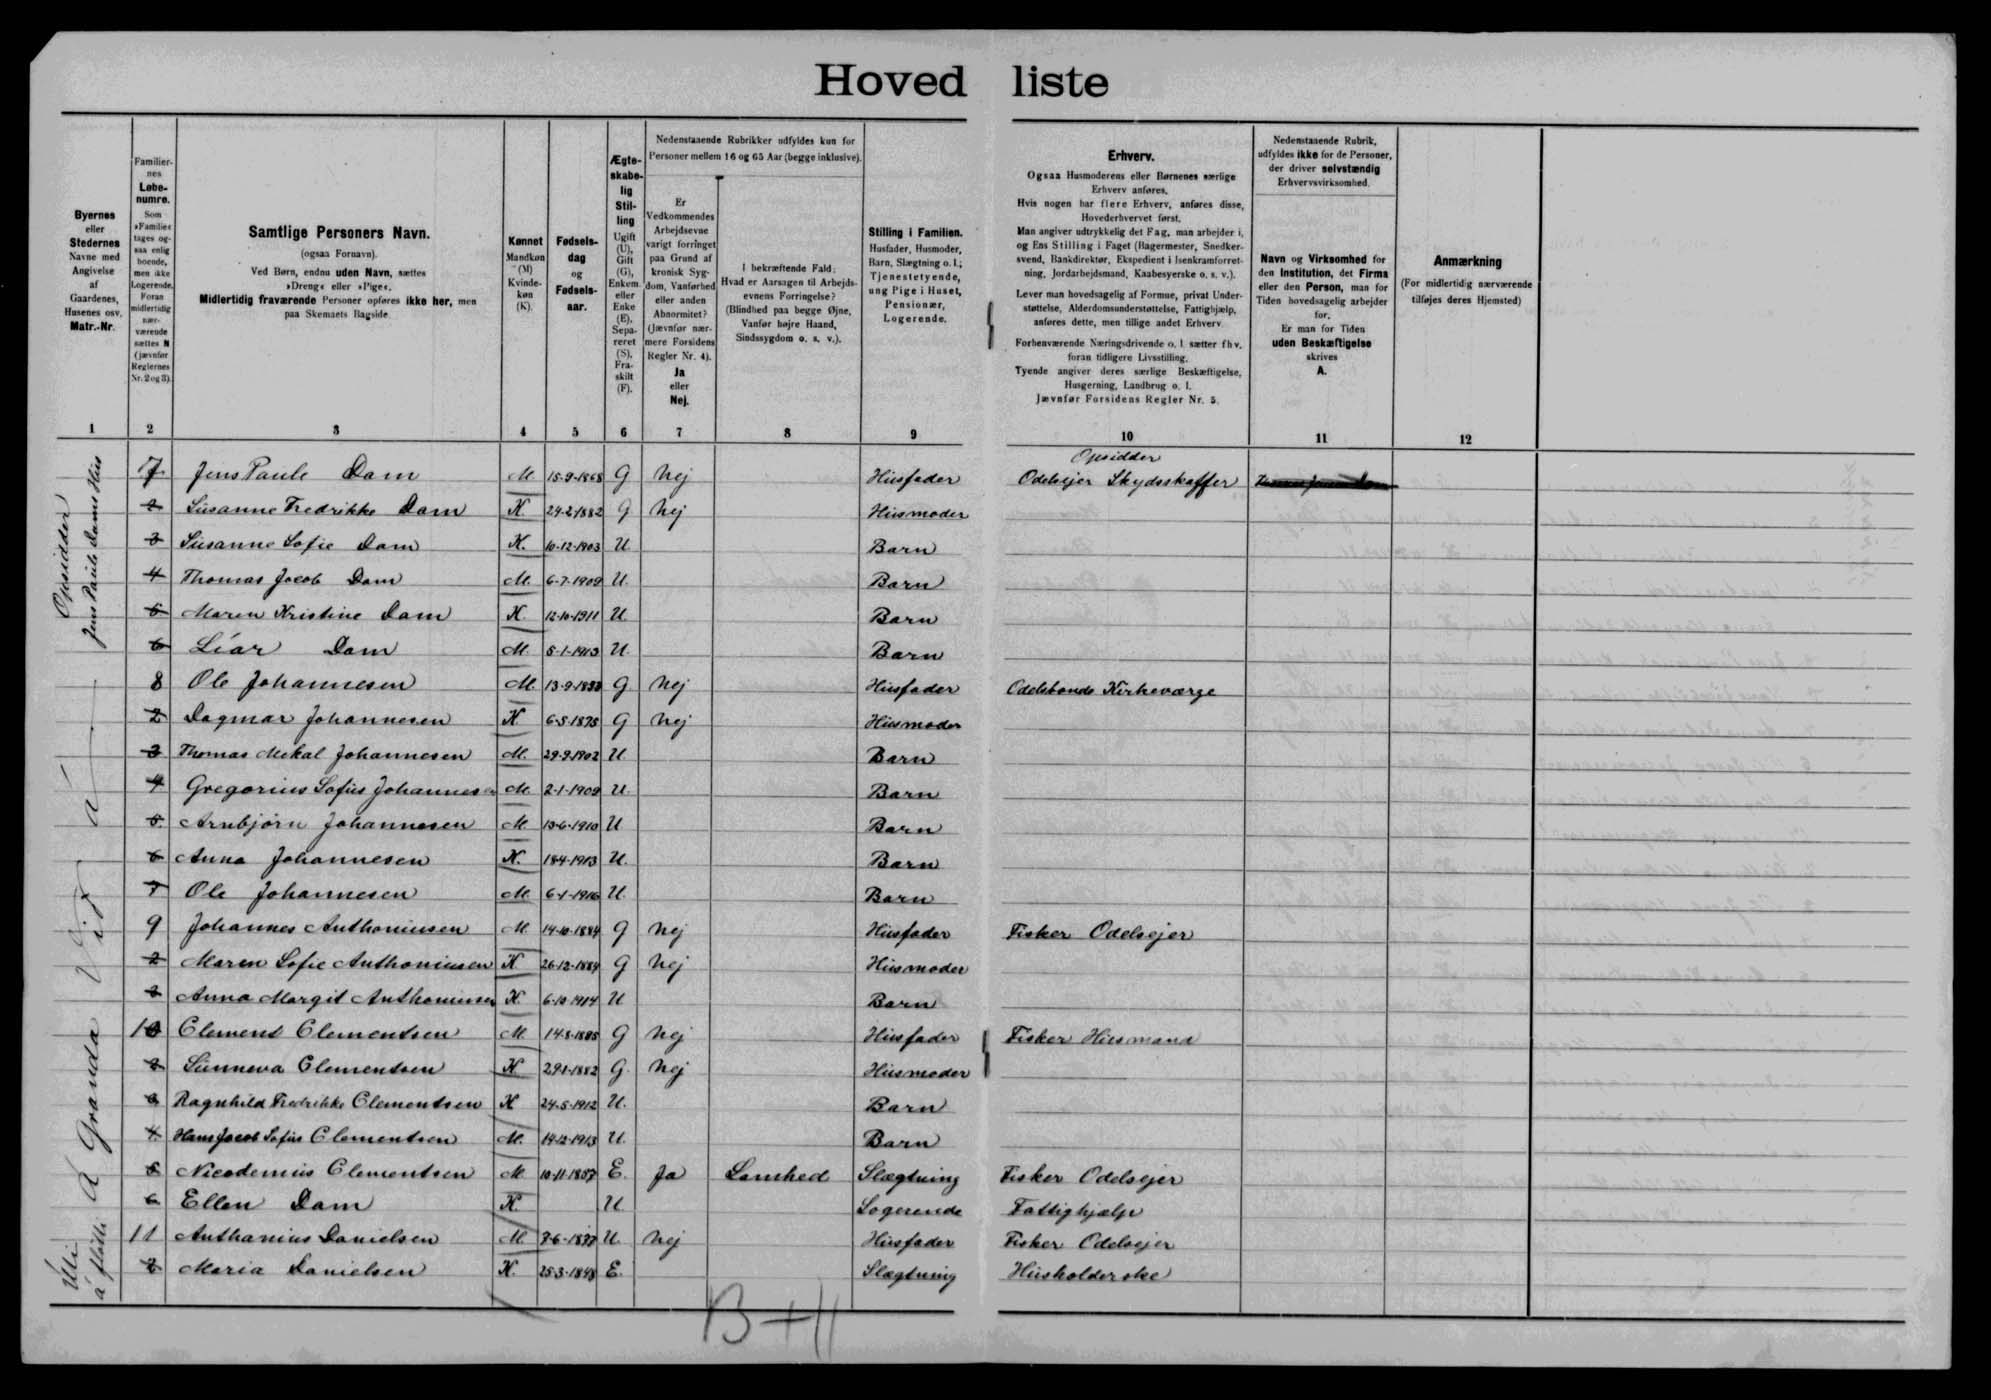 Hovedliste
Byernes
eller
Stedernes
Navne med
Angivelse
af
Gaardenes,
Husenes osv.
Matr.-Nr.
Familier-
nes
Løbe-
numre.
Som
»Familie«
tages og-
saa enlig
boende,
men ikke
Logerende.
Foran
midlertidig
nær-
værende
sættes N
(jævnfør
Reglernes
Nr. 2 og 3).
Samtlige Personers Navn.
(ogsaa Fornavn).
Ved Børn, endnu uden Navn, sættes
»Dreng« eller »Pige«.
Midlertidig fraværende Personer opføres ikke her, men
paa Skemaets Bagside.
Kønnet
Mandkøn
(M)
Kvinde-
køn
(K).
Fødsels-
dag
og
Fødsels-
aar.
Ægte-
skabe-
lig
Stil-
ling
Ugift
(U),
Gift
(G),
Enkem.
eller
Enke
(E),
Sepa-
reret
(S),
Fra-
skilt
(F).
Nedenstaaende Rubrikker udfyldes kun for
Personer mellem 16 og 65 Aar (begge inklusive).
Er
Vedkommendes
Arbejdsevne
varigt forringet
paa Grund af
kronisk Syg-
dom, Vanførhed
eller anden
Abnormitet?
(Jævnfør nær-
mere Forsidens
Regler Nr. 4).
Ja
eller
Nej.
I bekræftende Fald:
Hvad er Aarsagen til Arbejds-
evnens Forringelse?
(Blindhed paa begge Øjne,
Vanfør højre Haand,
Sindssygdom o. s. v.).
Stilling i Familien.
Husfader, Husmoder,
Barn, Slægtning o. l.;
Tjenestetyende,
ung Pige i Huset,
Pensionær,
Logerende.
Erhverv.
Ogsaa Husmoderens eller Børnenes særlige
Erhverv anføres.
Hvis nogen har flere Erhverv, anføres disse,
Hovederhvervet først.
Man angiver udtrykkelig det Fag, man arbejder i,
og Ens Stilling i Faget (Bagermester, Snedker-
svend, Bankdirektør, Ekspedient i Isenkramforret-
ning, Jordarbejdsmand, Kaabesyerske o. s. v.).
Lever man hovedsagelig af Formue, privat Under-
støttelse, Alderdomsunderstøttelse, Fattighjælp,
anføres dette, men tillige andet Erhverv.
Forhenværende Næringsdrivende o. l. sætter fhv.
foran tidligere Livsstilling.
Tyende angiver deres særlige Beskæftigelse,
Husgerning, Landbrug o. l.
Jævnfør Forsidens Regler Nr. 5.
Nedenstaaende Rubrik,
udfyldes ikke for de Personer,
der driver selvstændig
Erhvervsvirksomhed.
Navn og Virksomhed for
den Institution, det Firma
eller den Person, man for
Tiden hovedsagelig arbejder
for.
Er man for Tiden
uden Beskæftigelse
skrives
A.
Anmærkning
(For midlertidig nærværende
tilføjes deres Hjemsted)
1 2 3 4 5 6 7 8 9 10 11 12
Opsidder
Jens Paule Dams Hus
Opsidder
7 Jens Paule Dam M. 15-9-1868 G Nej Husfader Odelsejer Skydsskaffer
2 Susanne Fredrikke Dam K. 24-2-1882 G Nej Husmoder
3 Susanne Sofie Dam K. 10-12-1903 U Barn
4 Thomas Jacob Dam M. 6-7-1909 U. Barn
5 Maren Kristine Dam K. 12-10-1911 U Barn
6 Liar Dam M. 5-1-1913 U. Barn
8 Ole Johannesen M. G Nej Husfader Odelsbonde Kirkeværge
2 Dagmar Johannesen K. 6-5-1875 G Nej Husmoder
3 Thomas Mikal Johannesen M. 29-9-1902 U Barn
4 Gregorius Sofus Johannesen M 2-1-1909 U. Barn
5. Arnbjørn Johannesen M. 13-6-1910 U Barn
6 Anna Johannesen K. 18-4-1913 U. Barn
7 Ole Johannesen M. 6-1-1916 U. Barn
9 Johannes Anthoniusen M 14-10-1884 G Nej Husfader Fisker Odelsejer
2 Maren Sofie Anthoniusen K 26-12-1884 G Nej Husmoder
3 Anna Margit Anthoniusen K. 6-10-1914 U Barn
10 Clement Clementsen M. G Nej Husfader Fisker Husmand
2 Sunneva Clementsen K 29-1-1882 G. Nej Husmoder
3 Ragnhild Fredrikke Clementsen K 24-5-1912 U. Barn
4. Hans Jacob Sofus Clementsen M. 14-12-1913 U. Barn
5 Nicodemus Clementsen M 10-11-1857 E. Ja Lamhed Slægtning Fisker Odelsejer
6 Ellen Dam K. U Logerende Fattighjælp
11 Anthanius Danielsen M. U. Nej Husfader Fisker Odelsejer
2 Maria Danielsen K. 25-3-1848 E. Slægtning Husholderske
Uti
á fløtti Á Granda Við á
B+11